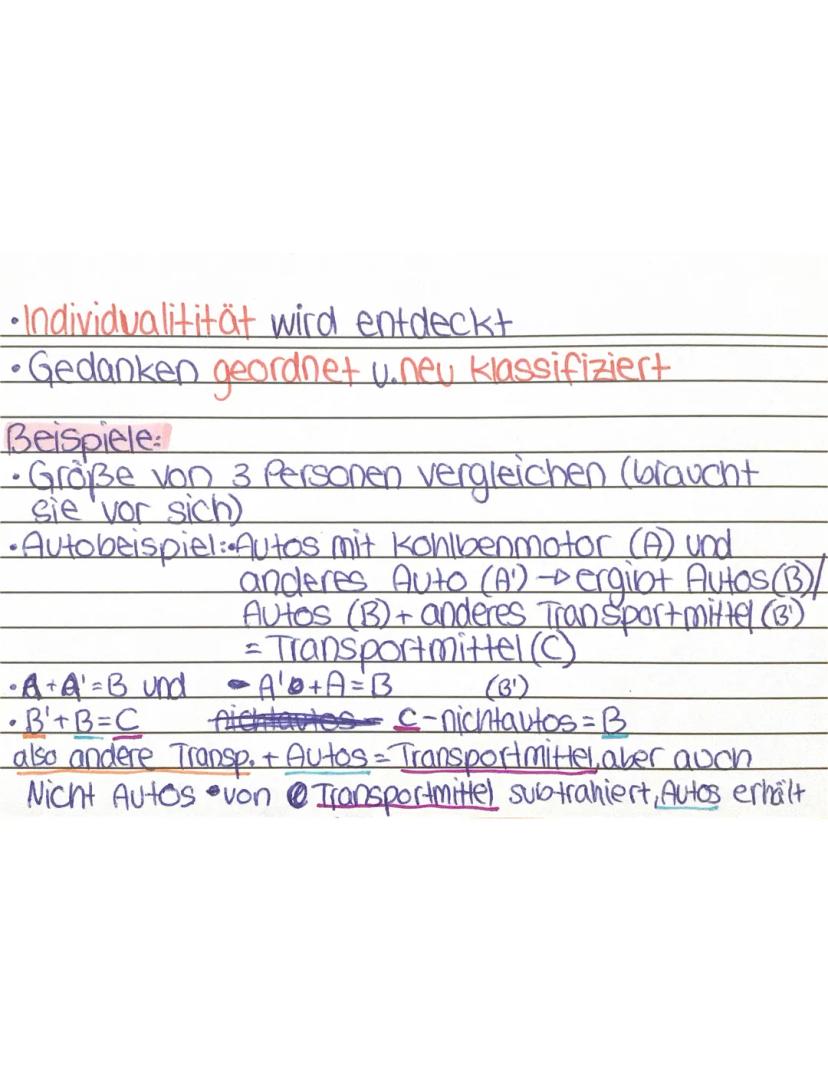 • Individualitität wird entdeckt
• Gedanken geordnet u. neu klassifiziert
Beispiele:
• Größe von 3 Personen vergleichen (braucht
sie vor sich)
• Autobeispiel: • Autos mit Kohlbenmotor (A) und
anderes Auto (A') → ergibt Autos (B)/
Autos (B) + anderes Transportmittel (B')
= Transportmittel (C)
• A + A' = B und - A' + A = B (B')
• B' + B = C nichtautos = C - nichtautos = B
also andere Transp. + Autos = Transportmittel, aber auch
Nicht Autos • von Transportmittel subtrahiert, Autos erhält